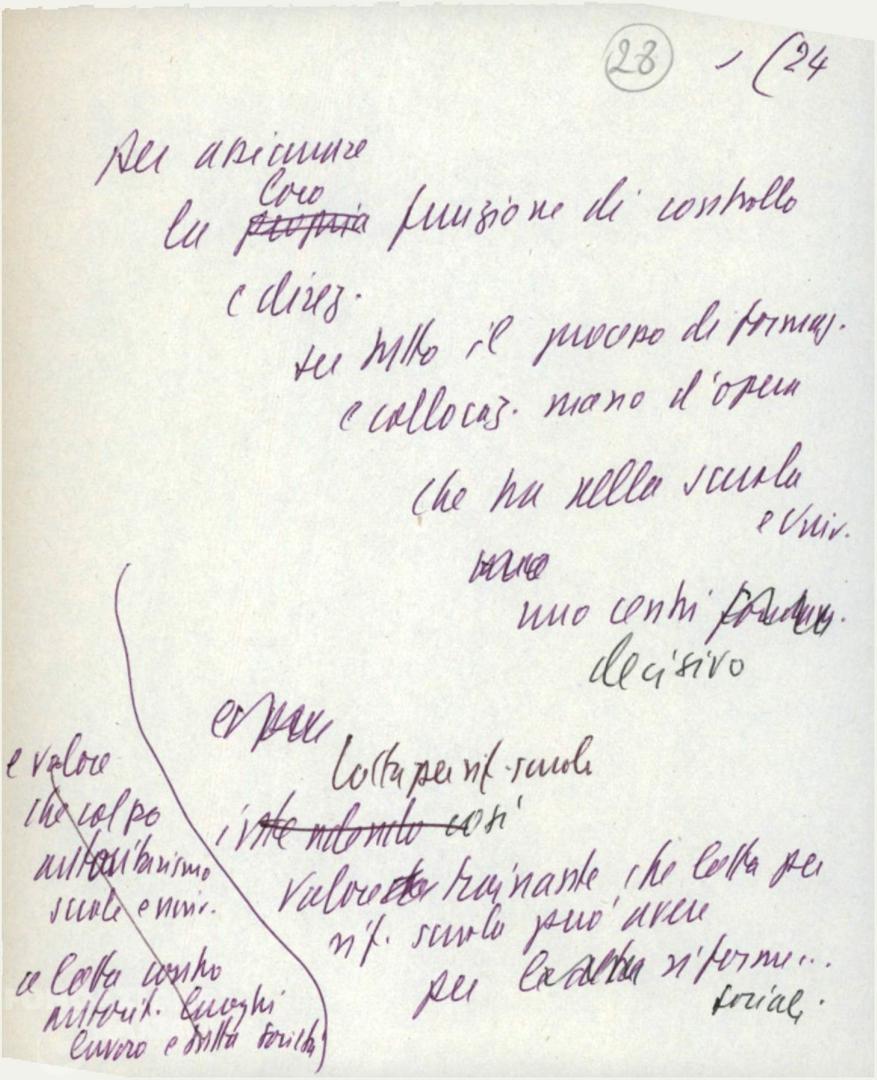 28 (24
per assicurare
loro
la propria funzione di controllo
e direz.
su tutto il processo di formaz.
e collocaz. mano d'opera
che ha nella scuola
e univ.
uno centri
decisivo
lotta per rif. scuola
intendendo così
valore trainante che lotta per
rif. scuola può avere
per le altre riforme...
sociali.
e valore
che colpo
autoritarismo
scuole e univ.
a lotta contro
autorit. luoghi
lavoro e tutta società)